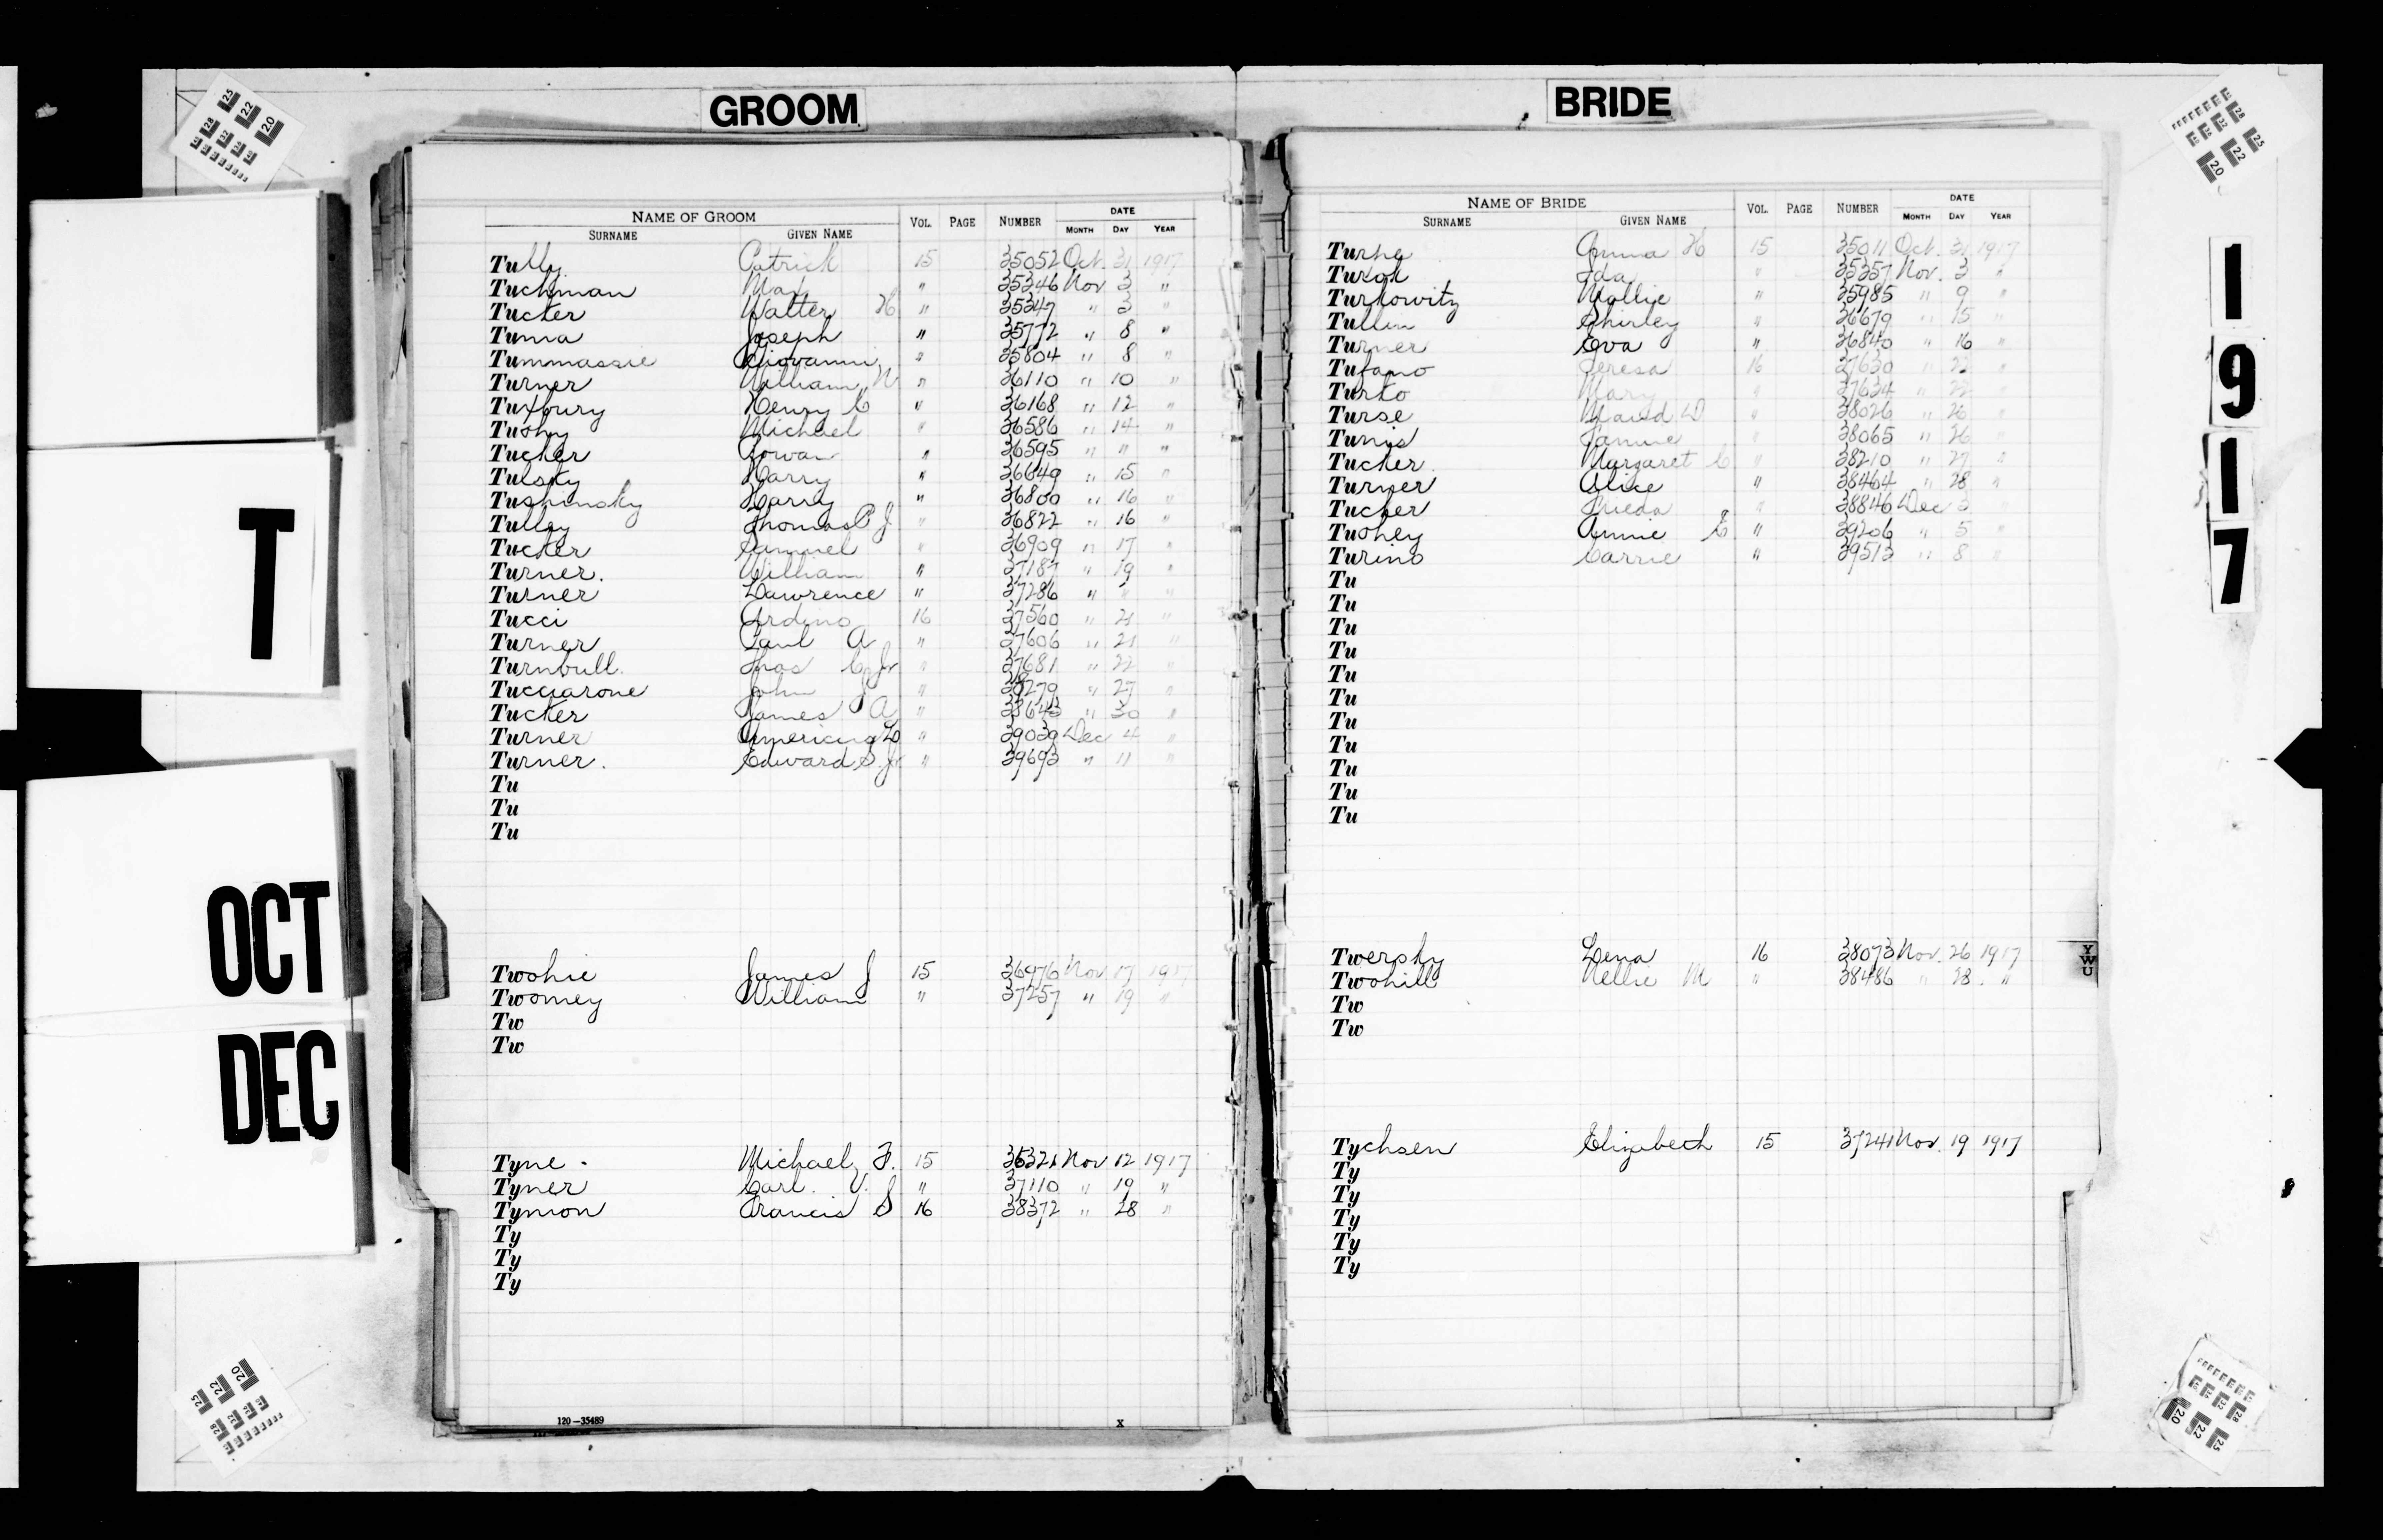 GROOM
NAME OF GROOM VOL. PAGE NUMBER DATE
SURNAME GIVEN NAME MONTH DAY YEAR
Tully Patrick 15 35052 Oct. 31 1917
Tuchman Max " 35346 Nov 3 "
Tucker Walter H " 35347 " 3 "
Tuma Joseph " 35772 " 8 "
Tummassie Giovanni " 35804 " 8 "
Turner William N " 36110 " 10 "
Tuxbury Henry C " 36168 " 12 "
Tuohy Michael " 36586 " 14 "
Tucker Rowan " 36595 " " "
Tulsky Harry " 36649 " 15 "
Tushinsky Harry " 36800 " 16 "
Tulley Thomas P J. " 36822 " 16 "
Tucker Samuel " 36909 " 17 "
Turner. William " 37187 " 19 "
Turner Lawrence " 37286 " " "
Tucci Ardino 16 37560 " 21 "
Turner Paul A " 37606 " 21 "
Turnbull. Thos C Jr " 37681 " 22 "
Tucciarone John J " 38279 " 27 "
Tucker James A " 38643 " 30 "
Turner Americus L " 39039 Dec 4 "
Turner. Edward S. Jr " 39693 " 11 "
Tu
Tu
Tu
Twohie James J 15 36976 Nov 17 1917
Twomey William " 37257 " 19 "
Tw
Tw
Tyne Michael F. 15 36321 Nov 12 1917
Tyner Carl. V. " 37110 " 19 "
Tymon Francis S 16 38372 " 28 "
Ty
Ty
Ty
120-35489 X
BRIDE
NAME OF BRIDE VOL. PAGE NUMBER DATE
SURNAME GIVEN NAME MONTH DAY YEAR
Anna H 15 35011 Oct. 31 1917
Turok Ida " 35357 Nov. 3 "
Turkowitz Mollie " 35985 " 9 "
Tullin Shirley " 36679 " 15 "
Turner Eva " 36840 " 16 "
Tufano Teresa 16 37630 " 22 "
Turko Mary " 37634 " 22 "
Turse Maud D " 38026 " 26 "
Tunis Fannie " 38065 " 26 "
Tucker. Margaret C " 38210 " 27 "
Turner Alice " 38464 " 28 "
Tucker Frieda " 38846 Dec 3 "
Tuohey Annie E " 39206 " 5 "
Turino Carrie " 39513 " 8 "
Tu
Tu
Tu
Tu
Tu
Tu
Tu
Tu
Tu
Tu
Tu
Twersky Lena 16 38073 Nov. 26 1917
Twohill Nellie M " 38486 " 28. "
Tw
Tw
Tychsen Elizabeth 15 37241 Nov. 19 1917
Ty
Ty
Ty
Ty
Ty
T
OCT
DEC
1917